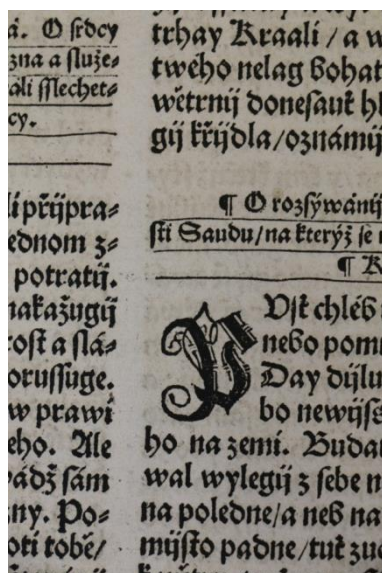 á. O ſrdcy
zna a ſluže⸗
ali ſſlechet⸗
cy.
li přijpra⸗
ednom z⸗
potratij.
nakažugij
roſt a ſlá⸗
oruſſuge.
w prawi
eho. Ale
ádž ſám
ny. Po⸗
oti tobě/
trhay Kraali / a w
twého nelag Bohat
wětrnij doneſaut h
gij křijdla/oznámij
¶ O rozſýwánij
ſti Saudu/na kterýž ſe
¶ K
PVſt chléb
nebo pom
Day dijlu
bo newijſ
ho na zemi. Buda
wal wylegij z ſebe n
na poledne/a neb na
mijſto padne/tuť zu